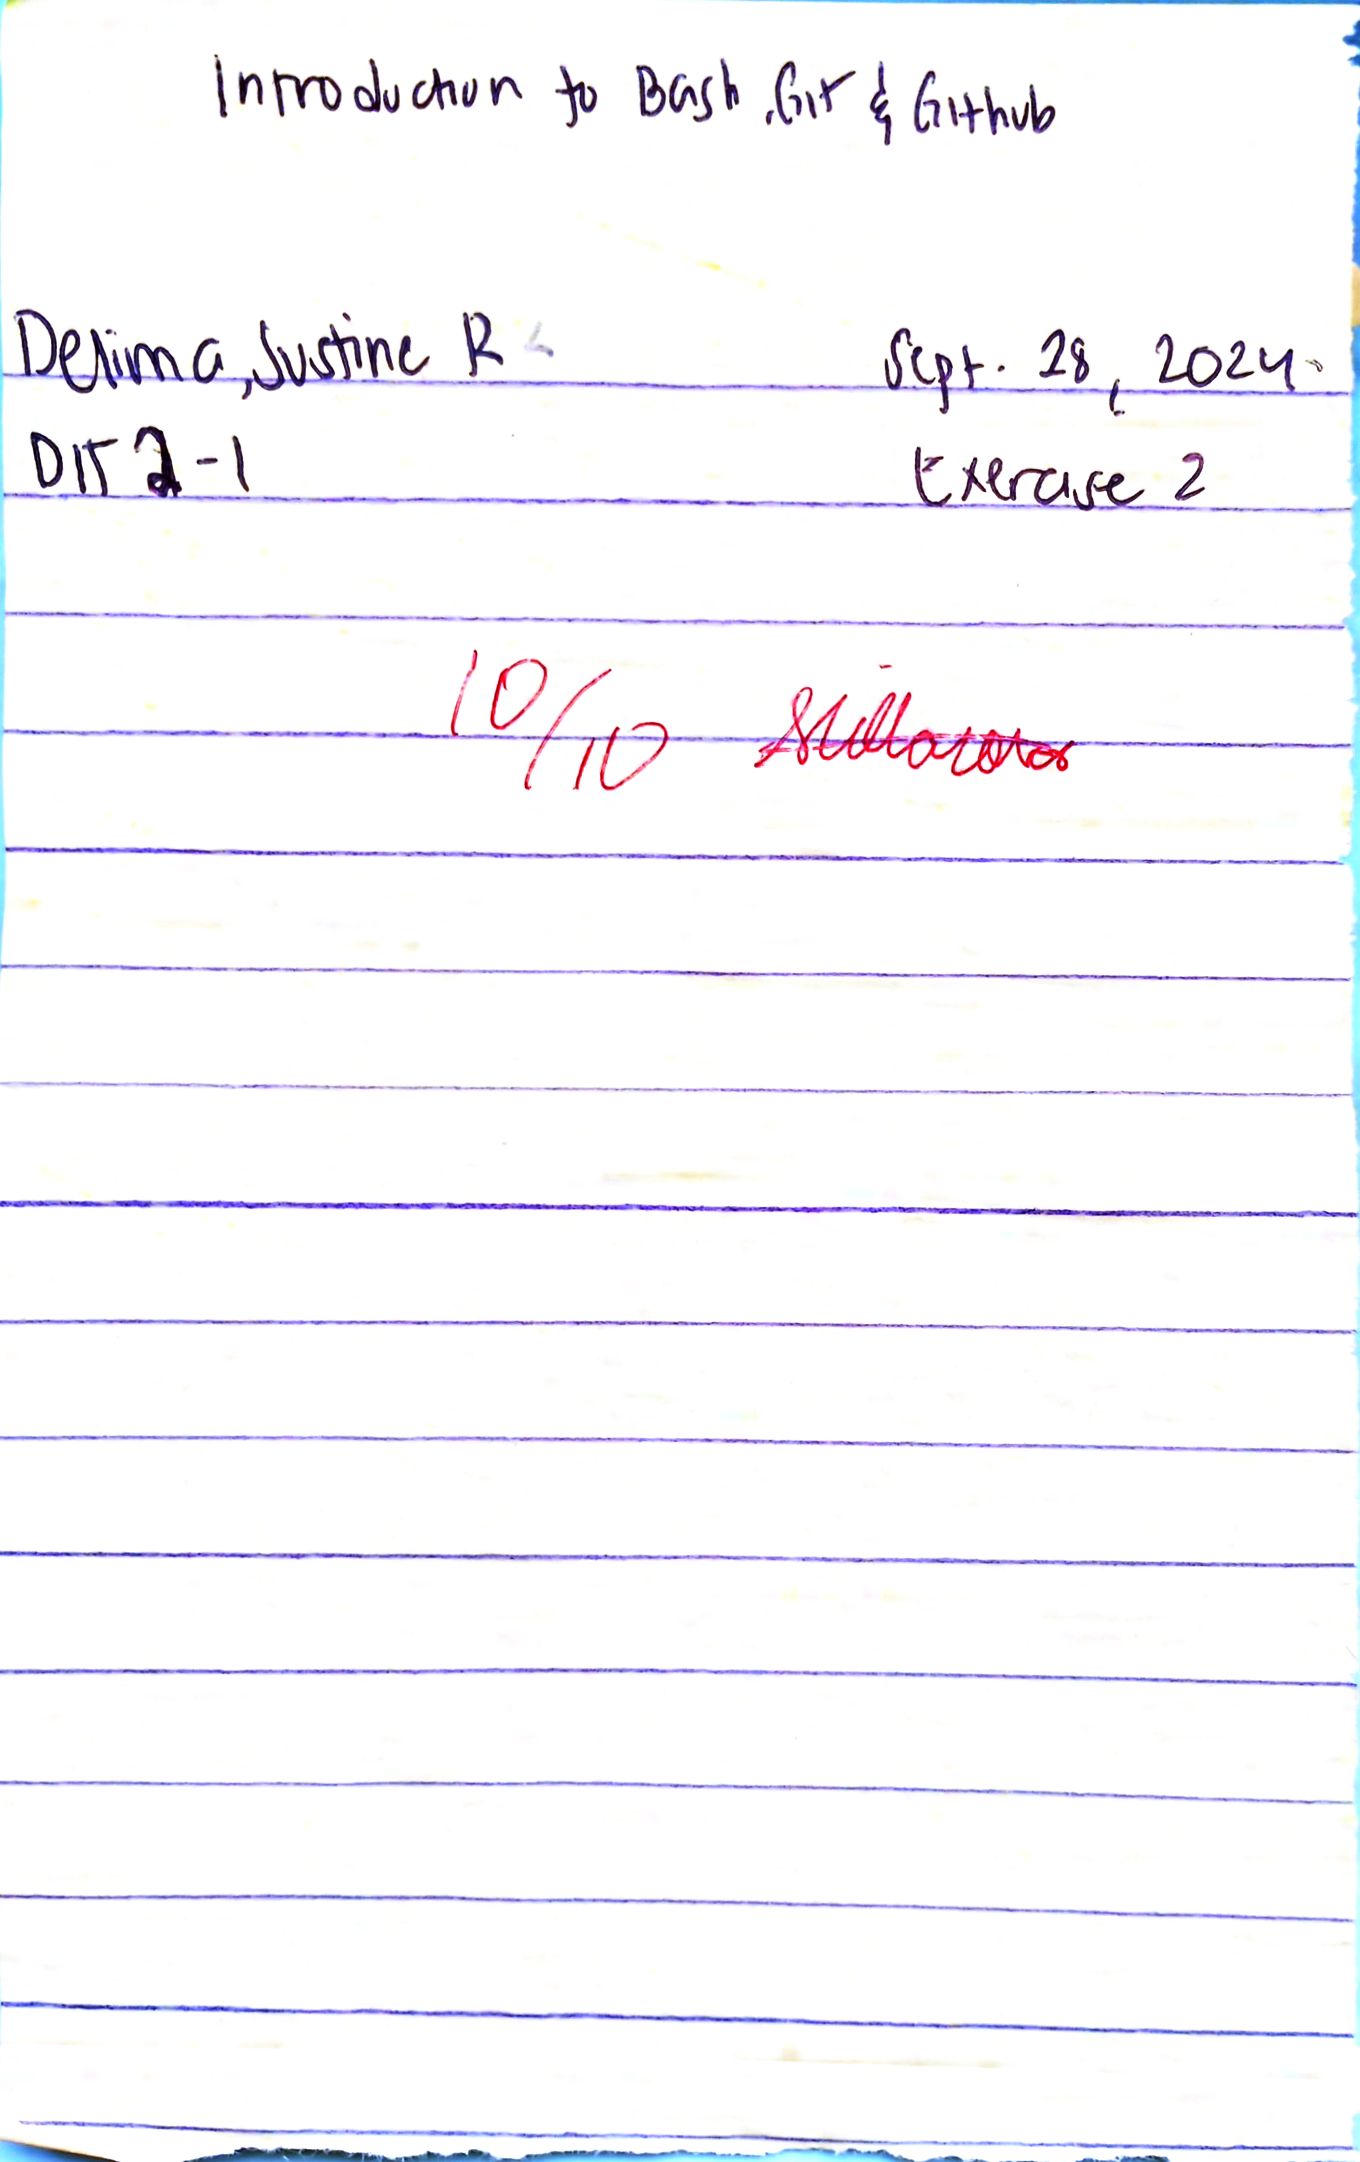 Introduction to Bash, Git & Github
Delima, Justine R
Sept. 28, 2024
DIT 2-1
Exercise 2
10/10